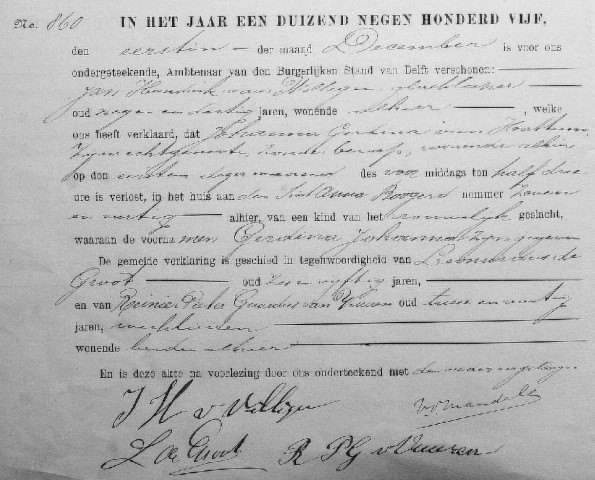 No. 860 IN HET JAAR EEN DUIZEND NEGEN HONDERD VIJF,
den eersten der maand December is voor ons
ondergeteekende, Ambtenaar van den Burgerlijken Stand van Delft verschenen:
Jan Hendrik van Willigen
oud negen en dertig jaren, wonende alhier, welke
ons heeft verklaard, dat Johanna Gerdina van
zijne echtgenoote, zonder beroep, wonende alhier
op den eersten dezer maand des voor middags ten half drie
ure is verlost, in het huis aan den Sint Anna Boogerd nommer zeven
en veertig alhier, van een kind van het vrouwelijk geslacht,
waaraan de voorna men Gerdina Johanna zijn gegeven
De gemelde verklaring is geschied in tegenwoordigheid van Leonardus de
Groot oud zes en vijftig jaren,
en van Reinier Pieter Gerardus van Vuuren oud twee en veertig
jaren,
wonende beiden alhier
En is deze akte na voorlezing door ons onderteekend met de
J H v Willigen
L de Groot R P G v Vuuren